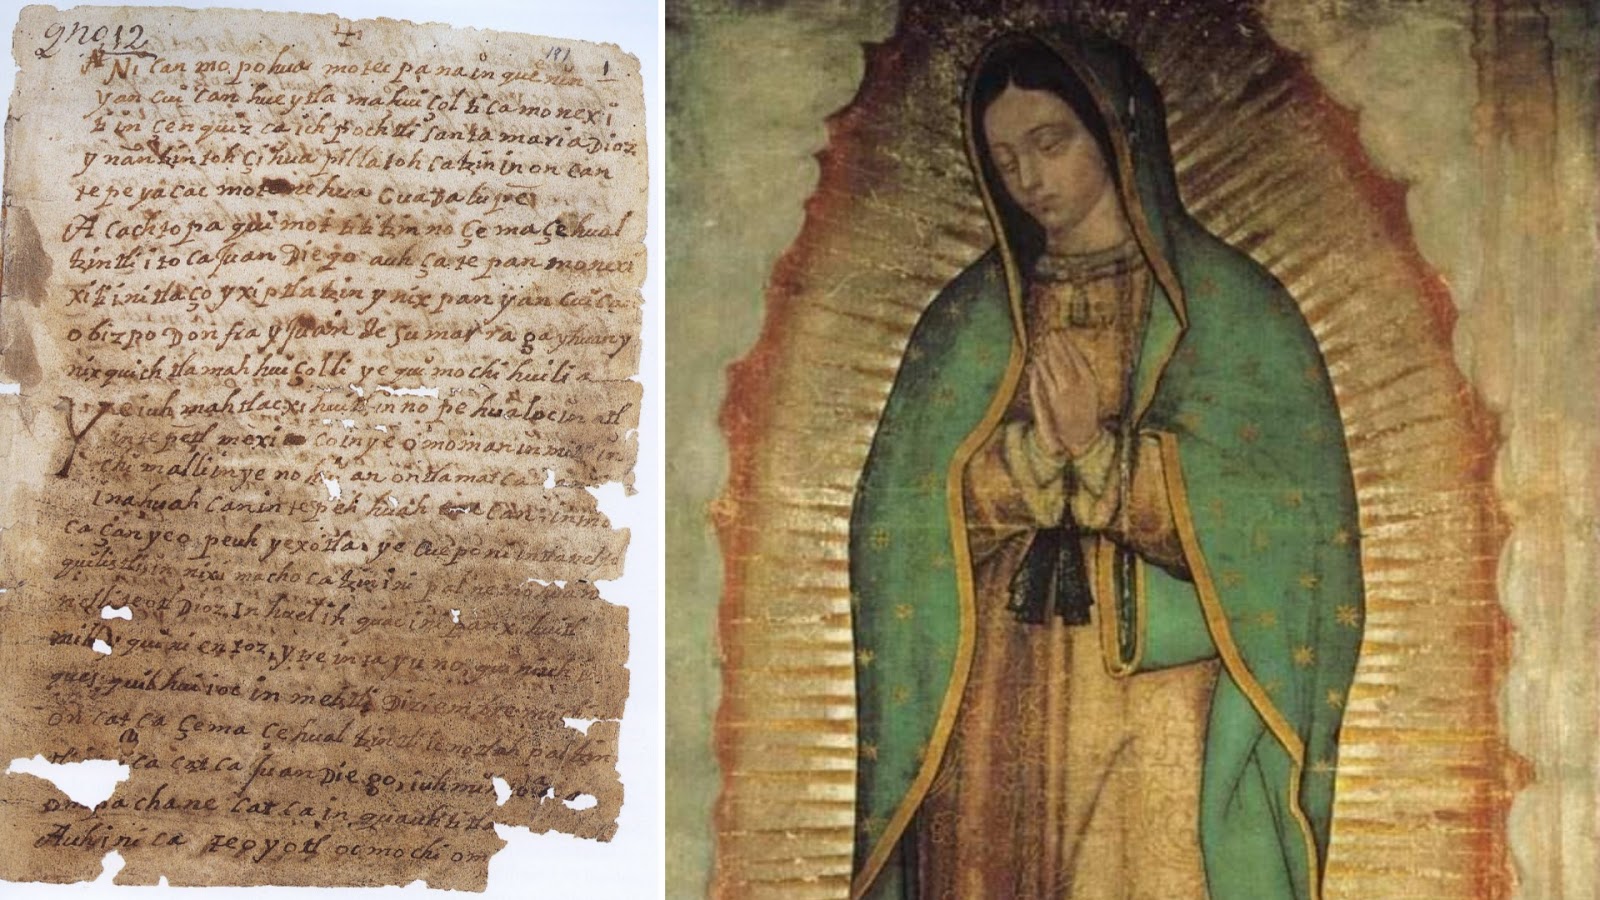 2no 12
191 1
Nican mo pohua motec pana in quenin
yancuican hueytlamahuiçoltica monexi
ti in çenquizca ichpochtli santa maria Dioz
ynantzin tohçihuapillatohcatzin in oncan
tepeyacac motenehua Guadalupe
Acachtopa quimottititzinno çe maçehual
tzintli itoca Juan Diego auh çatepan monexi
xiti initlaço yxiptlatzin ynixpan yancuican
obizpo Don fray Juan de Sumarraga yhuan y
nixquich tlamahuiçolli ye quimochihuilia
Ye iuh mahtlacxihuitl in nopehualoc in atl
in tepetl mexico in ye omoman in mitl
chimalli in ye nohuian ontlamatcamani
inahuac in tepehuah
ca çan yeo peuh ye xotla ye cueponi in tlanel
quiliztli in niximachocatzin in ipalnemohuani
nelli teotl Dioz In huel ih quac in ipan xihuitl
mill y quinientoz y treinta y uno quin iuh
quezquilhuioc in metztli Diziembre
oncatca çe maçehualtzintli icnotlapaltzin
itoca catca Juan Diego iuh mitoa
ompa chane catca in quauhtitlan
Auh in ica teoyotl oc mochi om